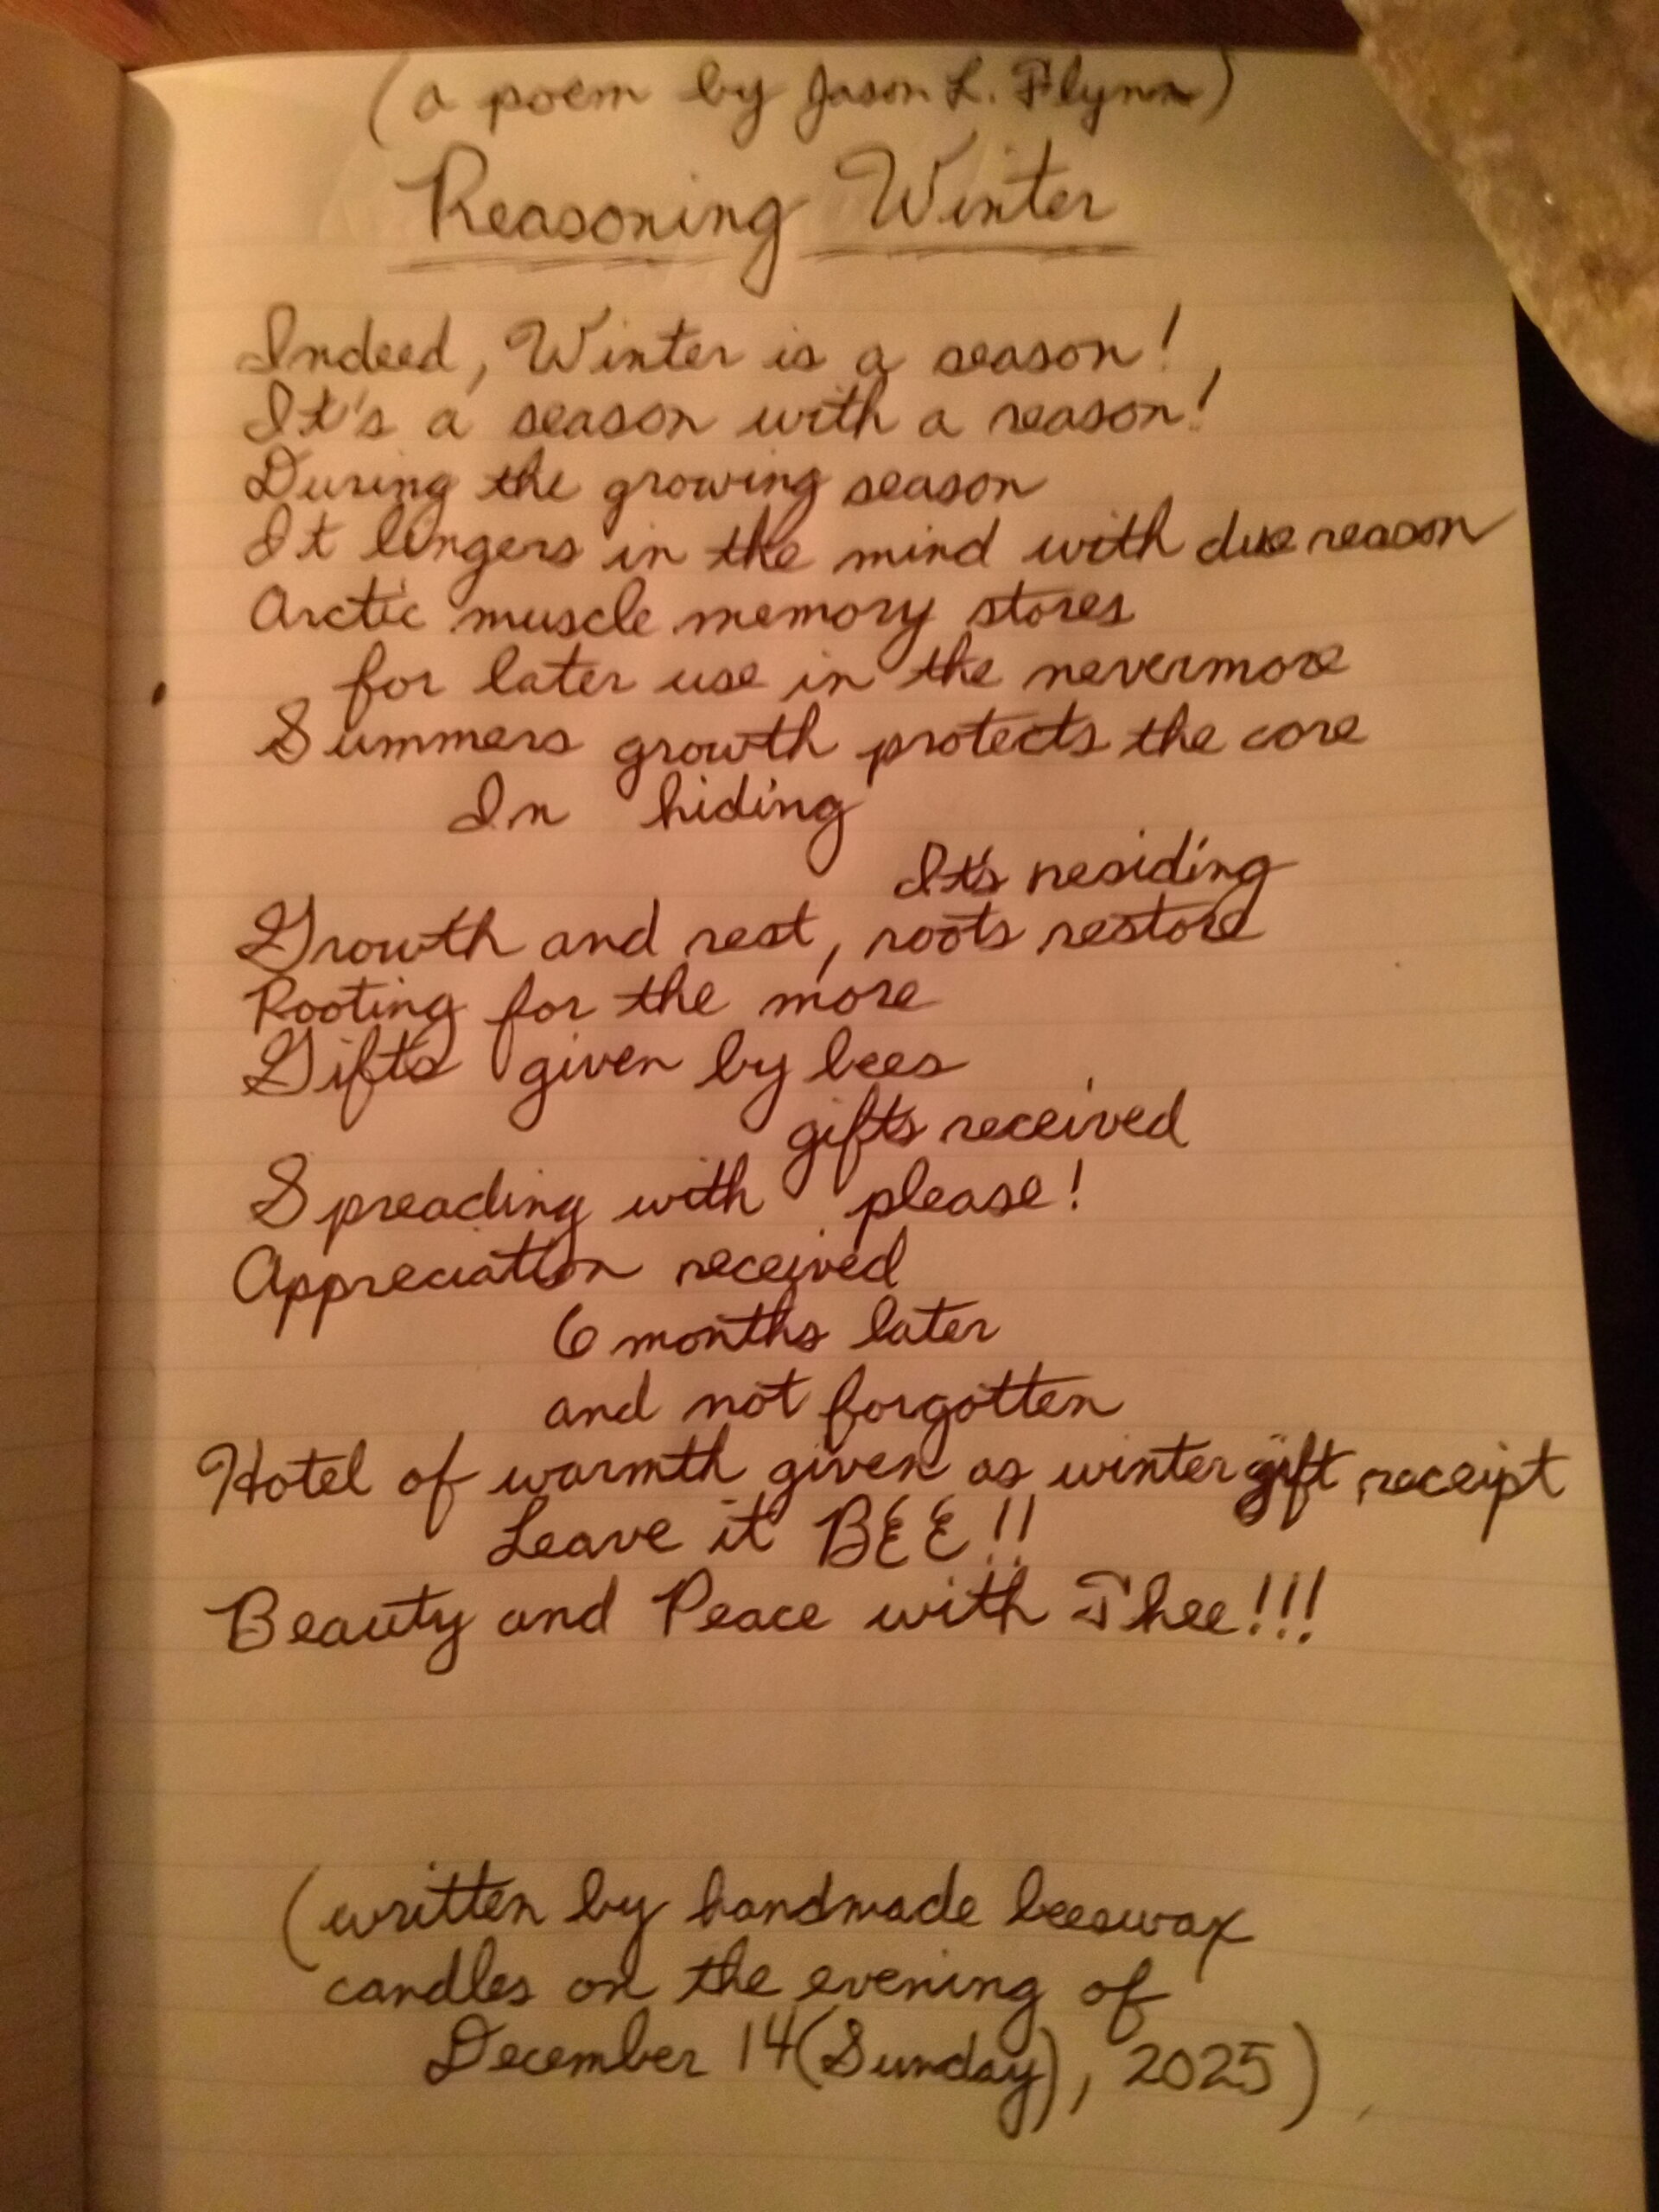 (a poem by Jason L. Flynn)
Reasoning Winter
Indeed, Winter is a season!
It's a season with a reason!
During the growing season
It lingers in the mind with due reason
Arctic muscle memory stores
for later use in the nevermore
Summers growth protects the core
In hiding
It's residing
Growth and rest, roots restore
Rooting for the more
Gifts given by bees
gifts received
Spreading with please!
Appreciation received
6 months later
and not forgotten
Hotel of warmth given as winter gift receipt
Leave it BEE!!
Beauty and Peace with Thee!!!
(written by handmade beeswax
candles on the evening of
December 14(Sunday), 2025)